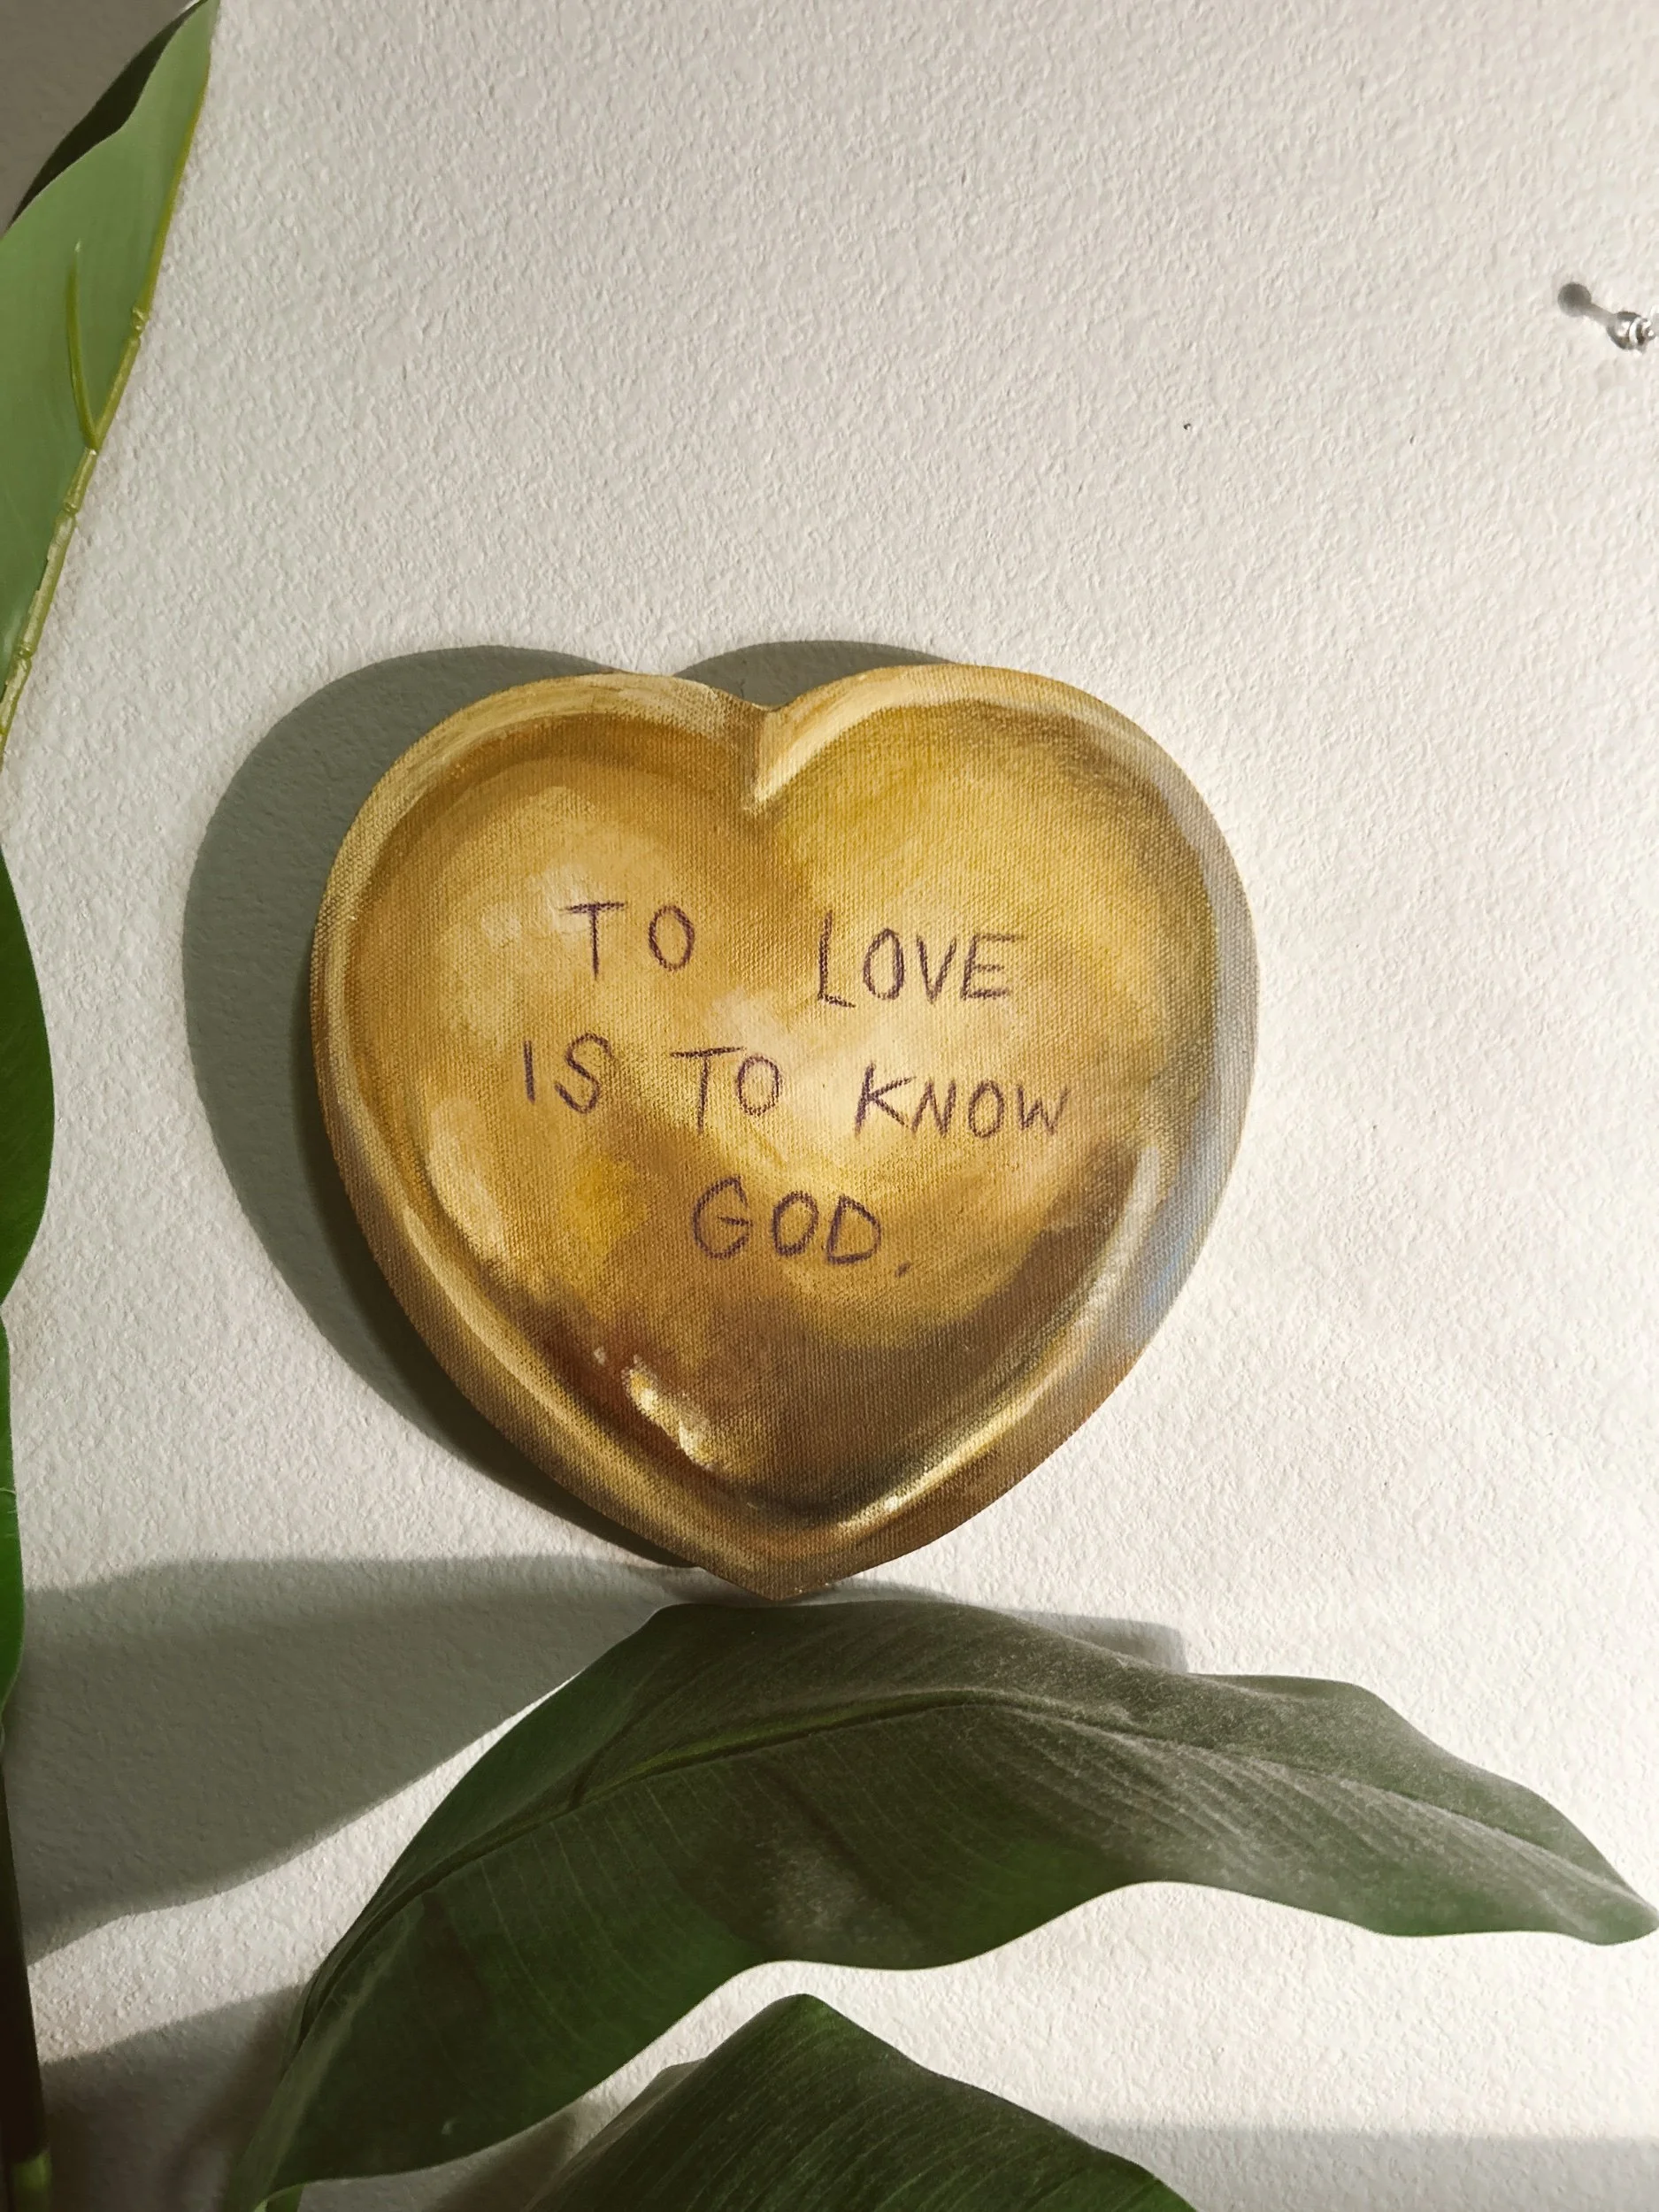 TO LOVE
IS TO KNOW
GOD.